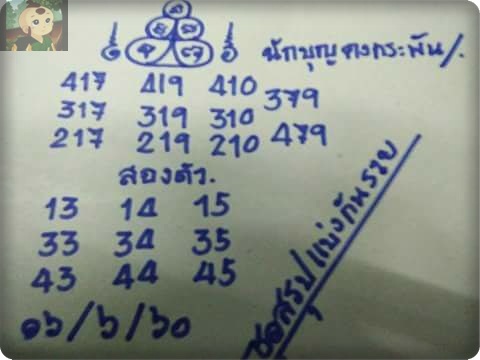 นักบุญคงกระพัน/.
417 419 410 379
317 319 310
217 219 210 479
สองตัว.
13 14 15
33 34 35
43 44 45
๑๖/๖/๖๐
ขอสรุป/แบ่งกันรวย